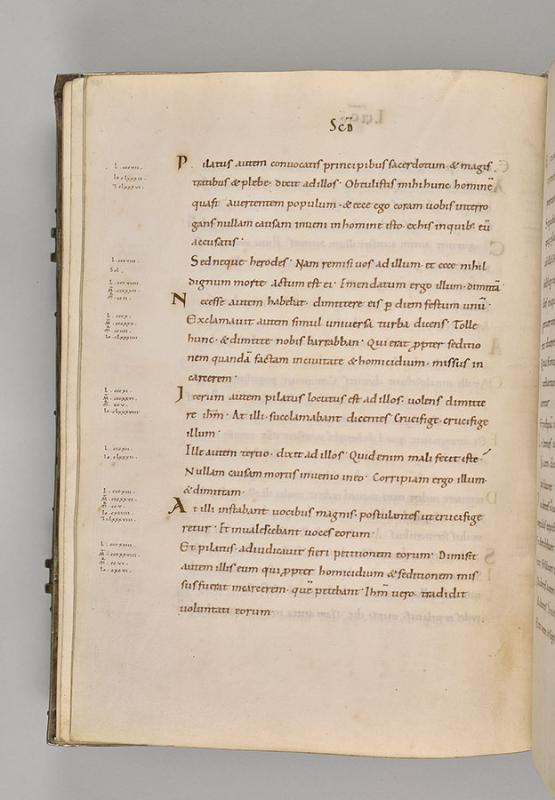 Scd̄
Pilatus autem conuocatis principibus sacerdotum & magis
tratibus & plebe· dixit ad illos· Obtulistis mihi hunc hominē
quasi auertentem populum· & ecce ego coram uobis interro
gans nullam causam inueni in homine isto exhis inquib; eū
accusatis·
Sed neque herodes· Nam remisi uos ad illum· et ecce nihil
dignum morte actum est ei· Emendatum ergo illum· dimittā
Necesse autem habebat· dimittere eis p diem festum unū·
Exclamauit autem simul uniuersa turba dicens· Tolle
hunc· & dimitte nobis barrabban· Qui erat ppter seditio
nem quandā factam inciuitate & homicidium· missus in
carcerem·
Iterum autem pilatus locutus est ad illos· uolens dimitte
re ihm̄· At illi succlamabant dicentes Crucifige crucifige
illum·
Ille autem tertio· dixit ad illos· Quid enim mali fecit iste
Nullam causam mortis inuenio ineo· Corripiam ergo illum·
& dimittam·
At illi instabant uocibus magnis· postulantes ut crucifige
retur· Et inualescebant uoces eorum·
Et pilatus adiudicauit fieri petitionem eorum· Dimisit
autem illis eum qui ppter homicidium & seditionem mis
sus fuerat incarcerem· quē petebant· Ihm̄ uero tradidit
uoluntati eorum·